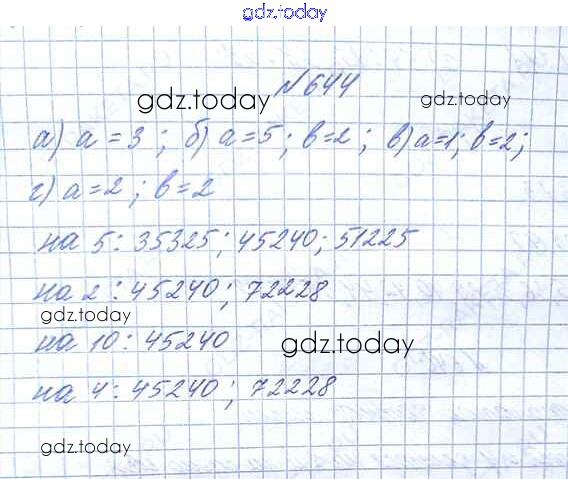 gdz.today
№644
gdz.today gdz.today
а) a = 3 ; б) a = 5 ; b = 2 ; в) a = 1; b = 2;
г) a = 2 ; b = 2
на 5: 35325; 45240; 51225
на 2 : 45240; 72228
gdz.today
на 10: 45240
gdz.today
на 4: 45240; 72228
gdz.today